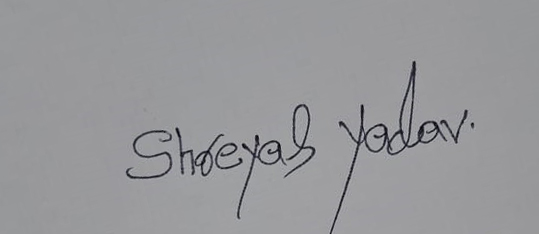 Shreyas Yadav.